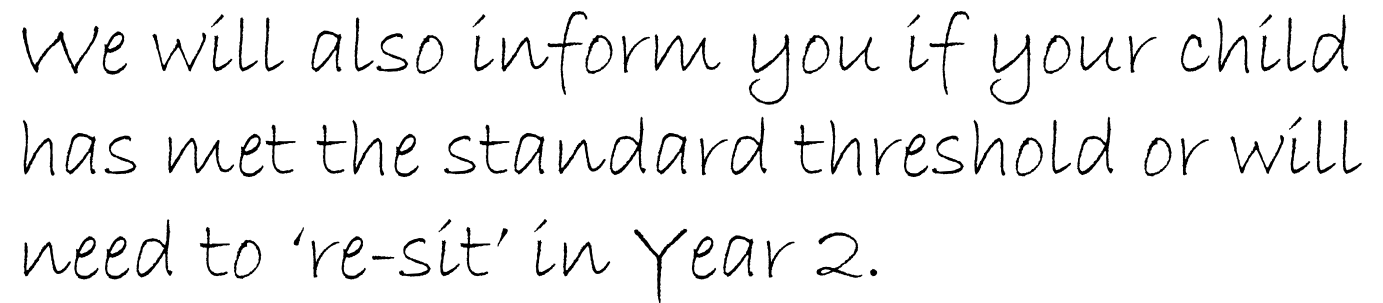 We will also inform you if your child
has met the standard threshold or will
need to ‘re-sit’ in Year 2.